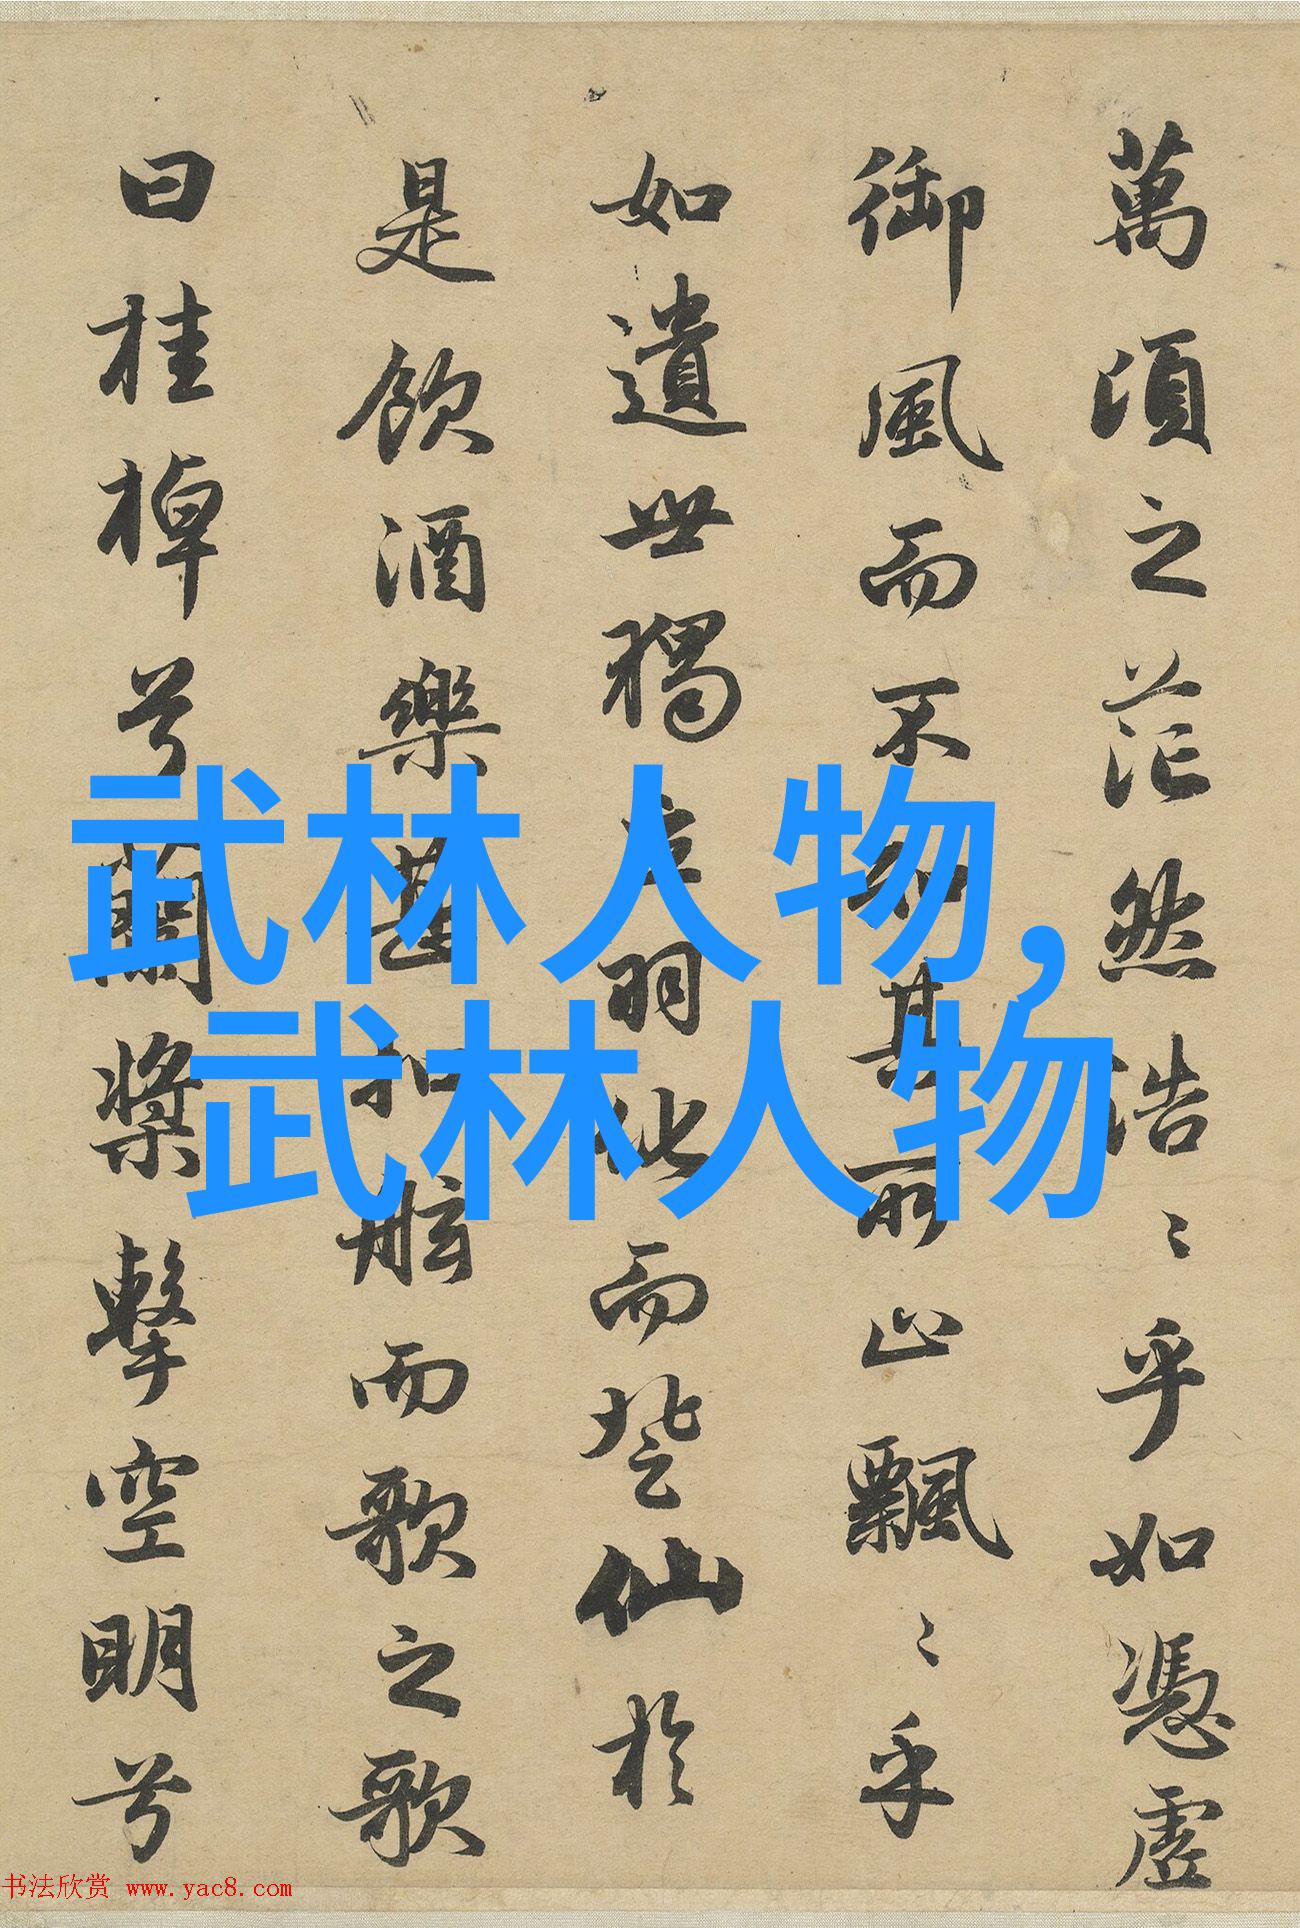 萬頃之茫然浩〻乎如憑虛
御風而不知其所止飄〻乎
如遺世獨立羽化而登仙於
是飲酒樂甚扣舷而歌之歌
曰桂棹兮蘭槳擊空明兮
武林人物,
武林人物
书法欣赏 www.yac8.com